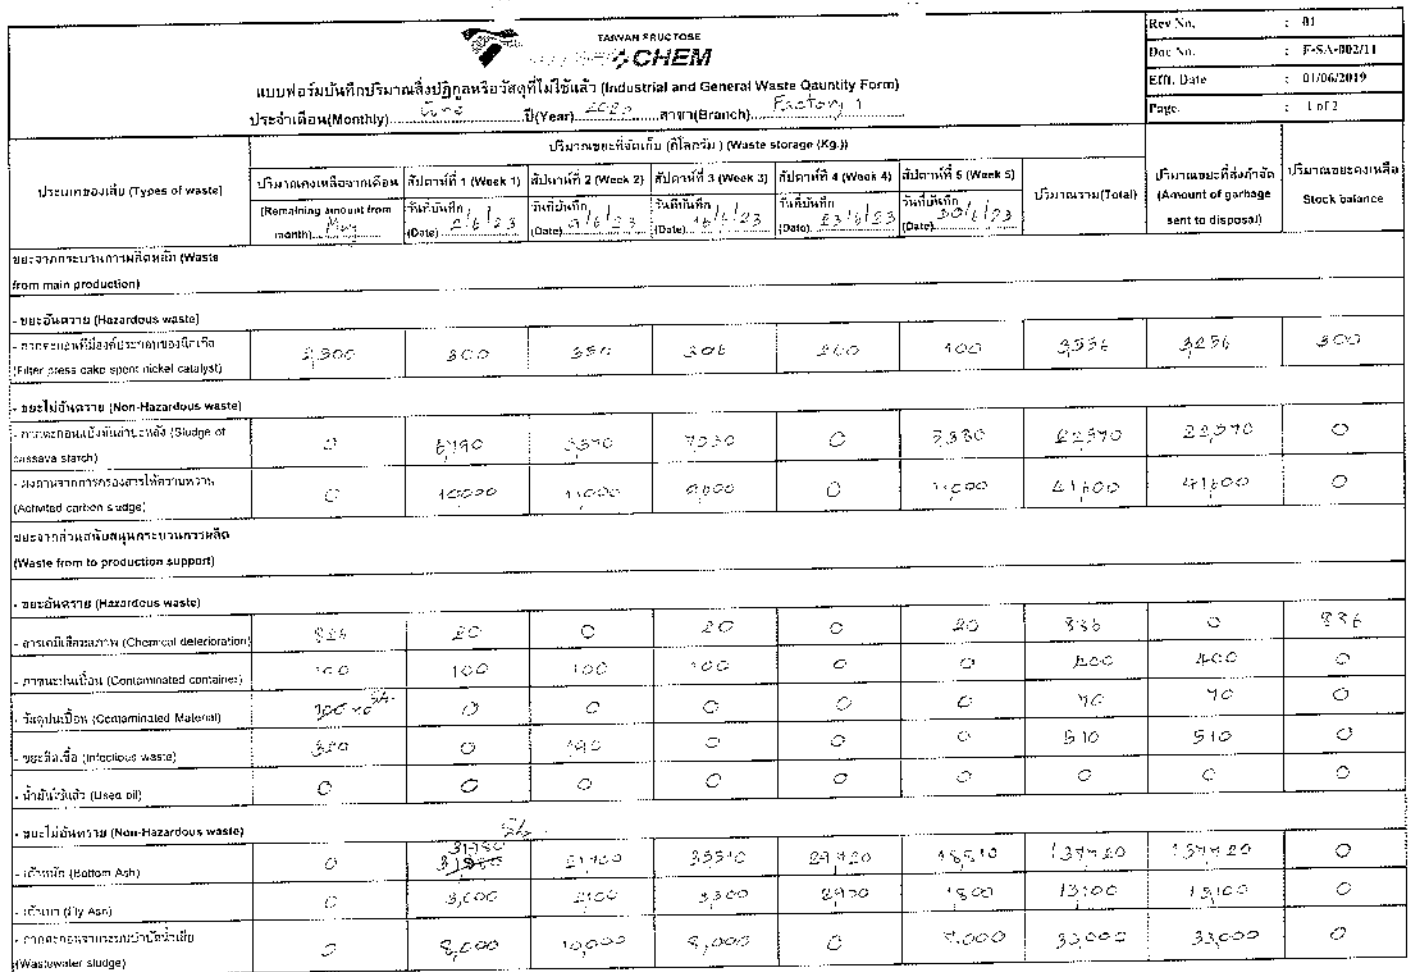 TAIWAN FRUCTOSE
CHEM
Rev No. : 01
Doc No. : F-SA-002/11
Efft. Date : 01/06/2019
Page. : 1 of 2
แบบฟอร์มบันทึกปริมาณสิ่งปฏิกูลหรือวัสดุที่ไม่ใช้แล้ว (Industrial and General Waste Qauntity Form)
ประจำเดือน(Monthly) ปี(Year) สาขา(Branch) Factory 1
ประเภทของเสีย (Types of waste)
ปริมาณขยะที่จัดเก็บ (กิโลกรัม ) (Waste storage (Kg.))
ปริมาณคงเหลือจากเดือน
(Remaining amount from
month) May
สัปดาห์ที่ 1 (Week 1)
วันที่บันทึก
(Date) 2/6/23
สัปดาห์ที่ 2 (Week 2)
วันที่บันทึก
(Date) 9/6/23
สัปดาห์ที่ 3 (Week 3)
วันที่บันทึก
(Date) 16/6/23
สัปดาห์ที่ 4 (Week 4)
วันที่บันทึก
(Date) 23/6/23
สัปดาห์ที่ 5 (Week 5)
วันที่บันทึก
(Date) 30/6/23
ปริมาณรวม(Total)
ปริมาณขยะที่ส่งกำจัด
(Amount of garbage
sent to disposal)
ปริมาณขยะคงเหลือ
Stock balance
ขยะจากกระบวนการผลิตหลัก (Waste
from main production)
- ขยะอันตราย (Hazardous waste)
- กากตะกอนที่มีองค์ประกอบของนิกเกิล
(Filter press cake spent nickel catalyst)
2,300 300 350 206 300
- ขยะไม่อันตราย (Non-Hazardous waste)
- กากตะกอนแป้งมันสำปะหลัง (Sludge of
cassava starch)
0 0 22,570 0
- ผงถ่านจากการกรองสารให้ความหวาน
(Activated carbon sludge)
0 10,000 11,000 9,600 0 11,000 41,600 41,600 0
ขยะจากส่วนสนับสนุนกระบวนการผลิต
(Waste from to production support)
- ขยะอันตราย (Hazardous waste)
- สารเคมีเสื่อมสภาพ (Chemical deterioration)
20 0 20 0 20 0
- ภาชนะปนเปื้อน (Contaminated container)
100 100 100 100 0 0 400 400 0
- วัสดุปนเปื้อน (Contaminated Material)
0 0 0 0 0 70 70 0
- ขยะติดเชื้อ (Infectious waste)
320 0 190 0 0 0 510 510 0
- น้ำมันใช้แล้ว (Used oil)
0 0 0 0 0 0 0 0 0
- ขยะไม่อันตราย (Non-Hazardous waste)
- เถ้าหนัก (Bottom Ash)
0 0
- เถ้าเบา (Fly Ash)
0 3,000 2100 3,300 2900 1800 13,100 13,100 0
- กากตะกอนจากระบบบำบัดน้ำเสีย
(Wastewater sludge)
0 8,000 10,000 8,000 0 33,000 33,000 0